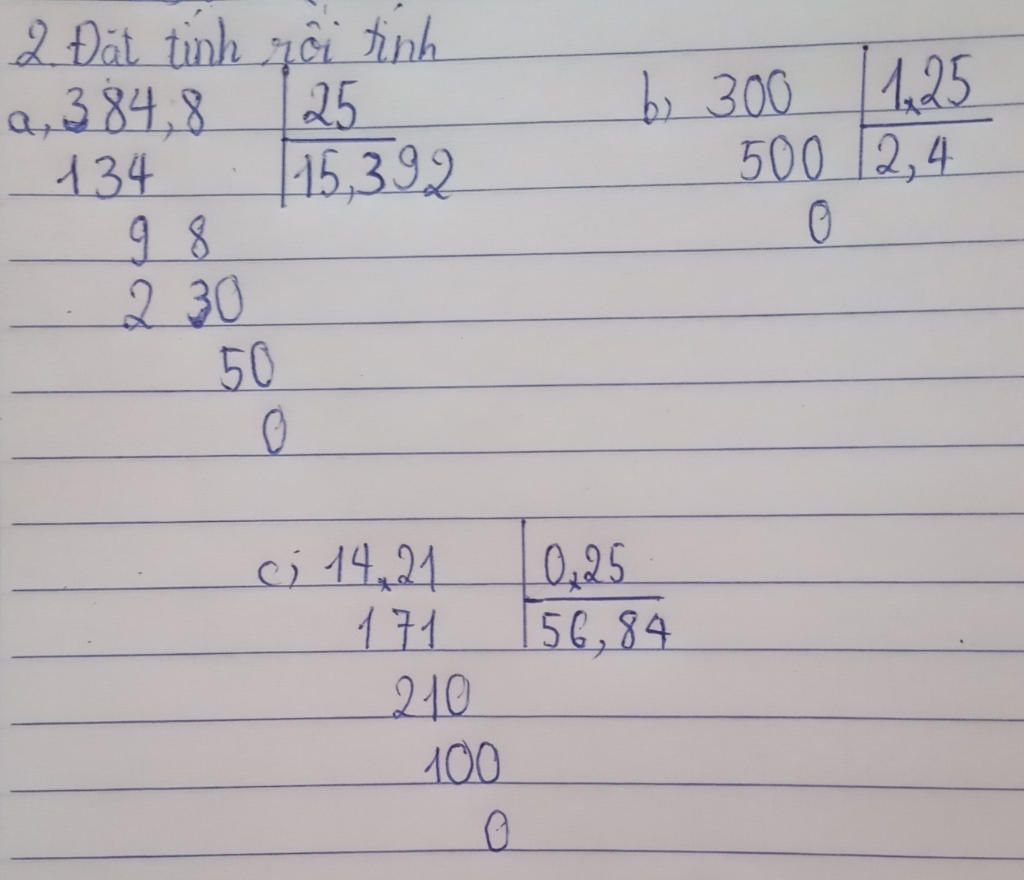 2. Đặt tính rồi tính
a, 384,8 | 25
134 | 15,392
9 8
2 30
50
0
b, 300 | 1,25
500 | 2,4
0
c, 14,21 | 0,25
171 | 56,84
210
100
0